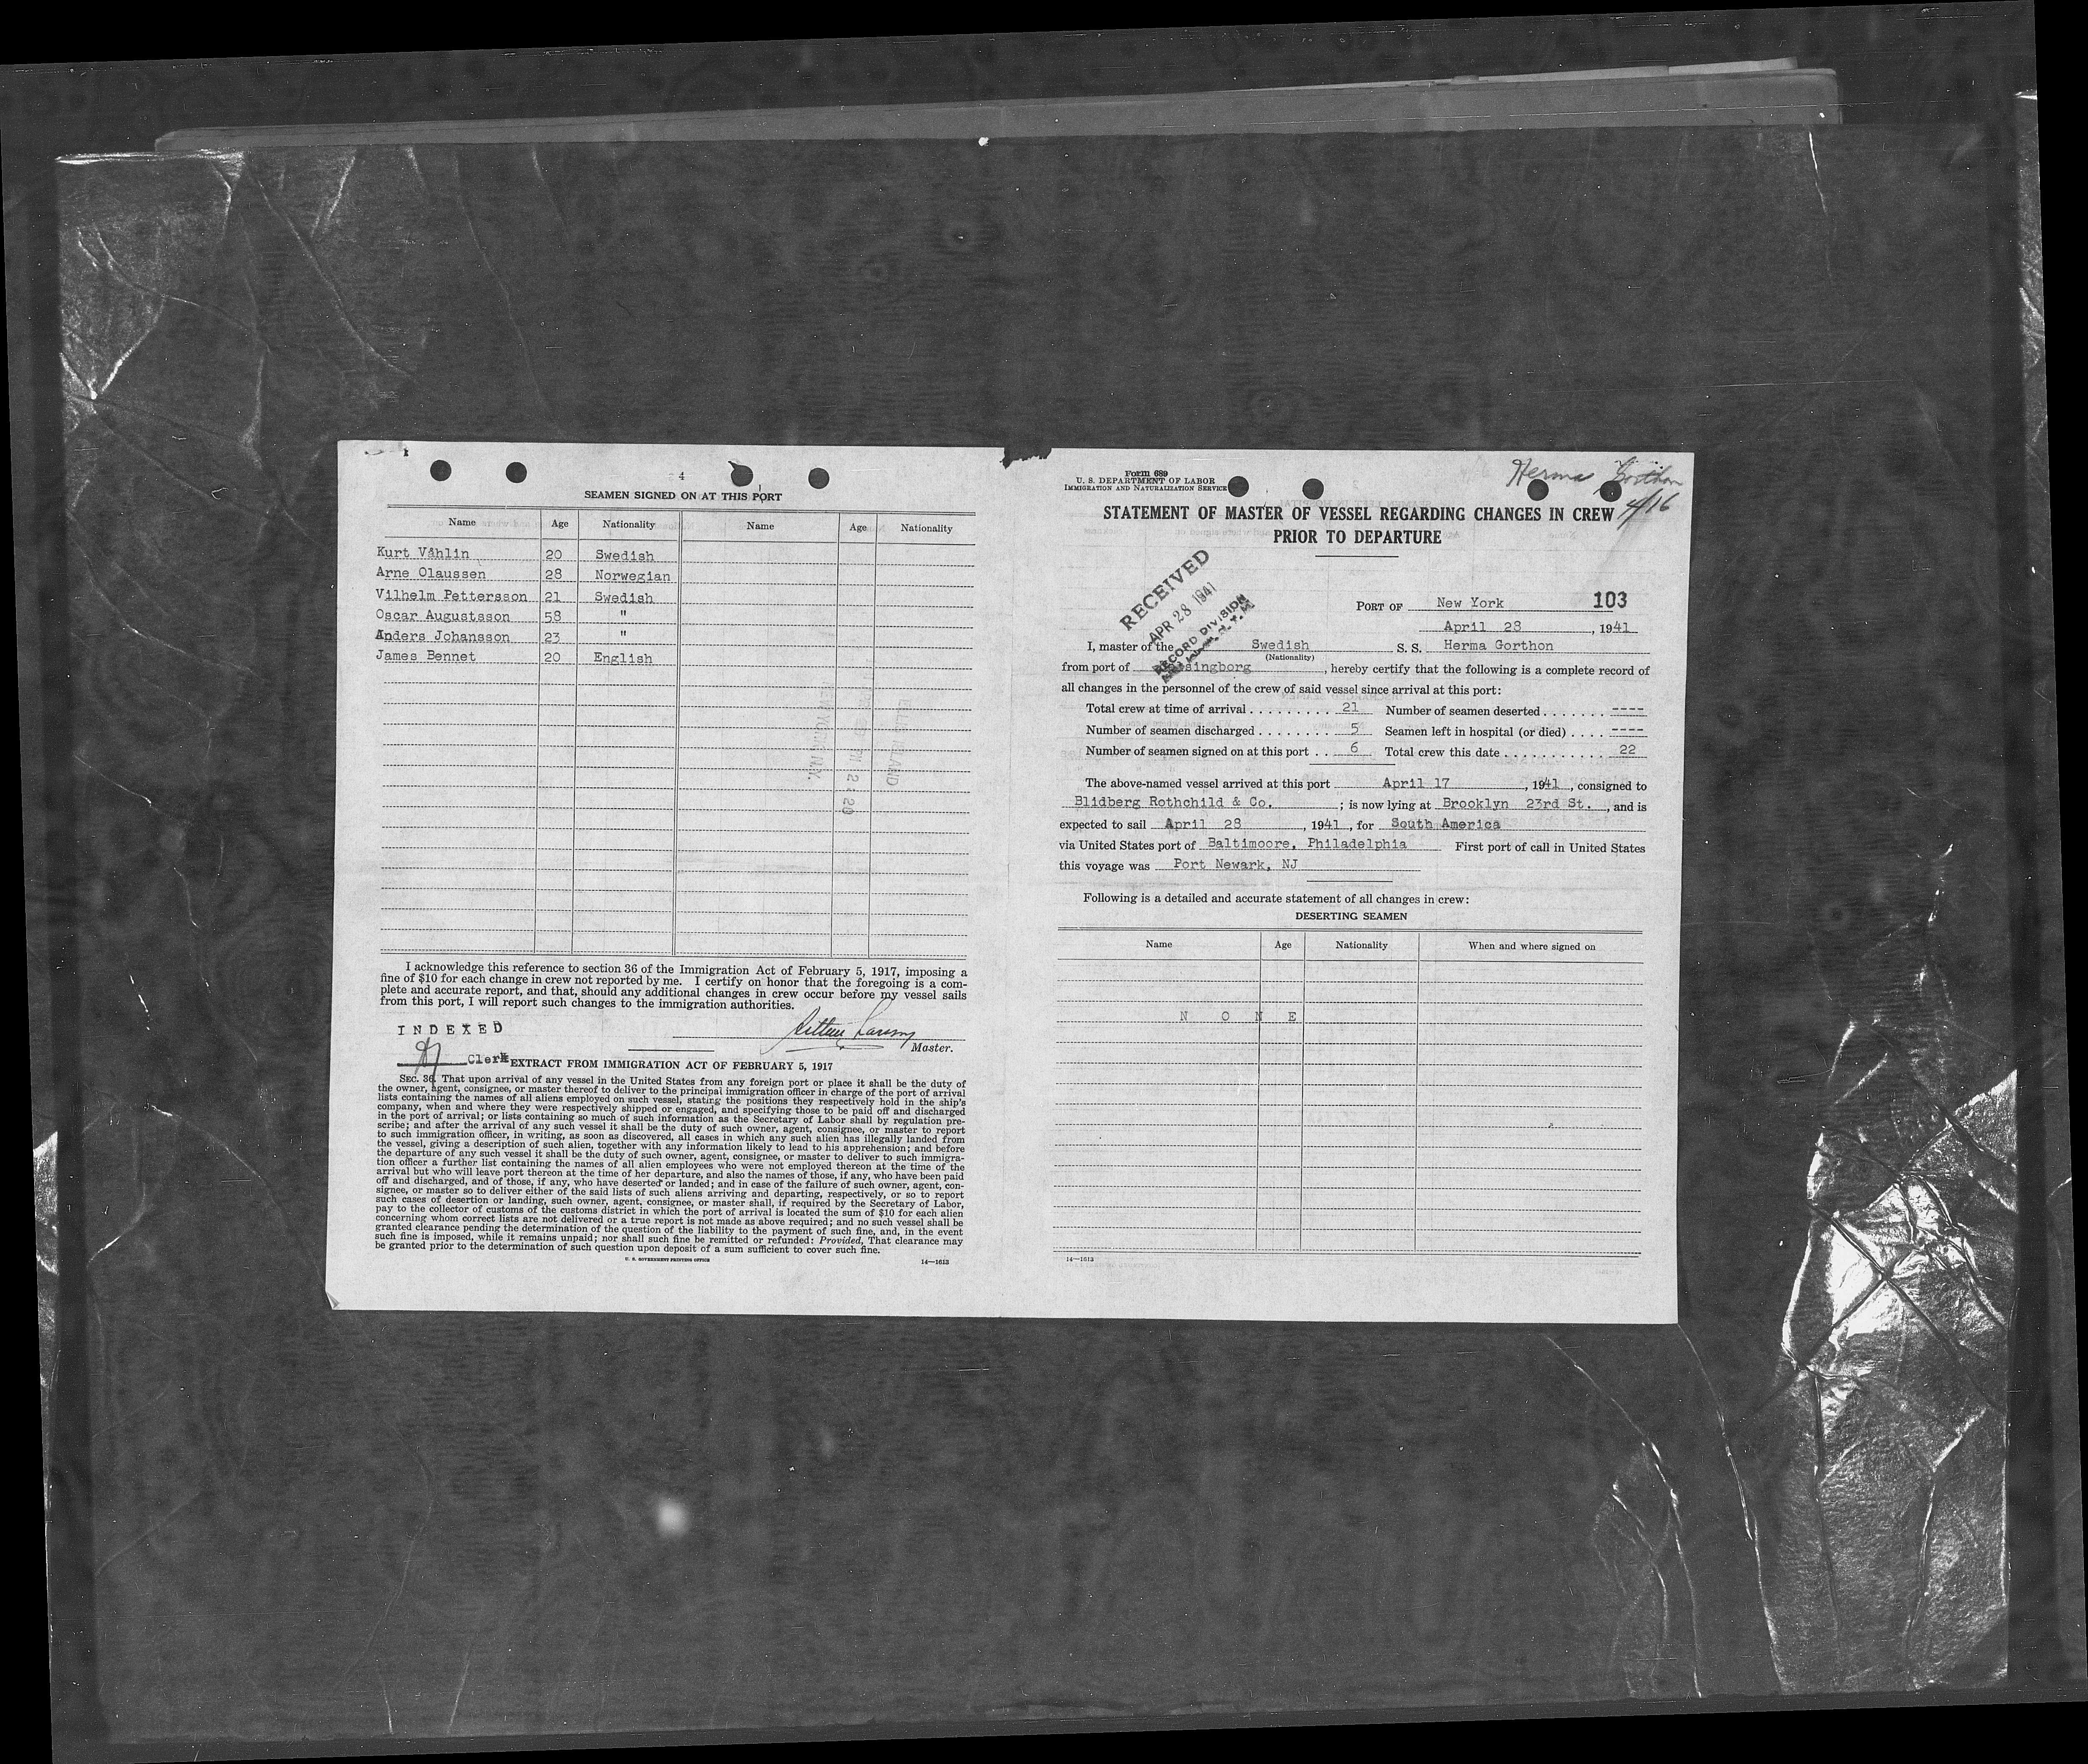 4
SEAMEN SIGNED ON AT THIS PORT
Name Age Nationality Name Age Nationality
Kurt Våhlin 20 Swedish
Arne Olaussen 28 Norwegian
Vilhelm Pettersson 21 Swedish
Oscar Augustsson 58 "
Anders Johansson 23 "
James Bennet 20 English
I acknowledge this reference to section 36 of the Immigration Act of February 5, 1917, imposing a
fine of $10 for each change in crew not reported by me. I certify on honor that the foregoing is a com-
plete and accurate report, and that, should any additional changes in crew occur before my vessel sails
from this port, I will report such changes to the immigration authorities.
INDEXED
Master.
Clerk
EXTRACT FROM IMMIGRATION ACT OF FEBRUARY 5, 1917
SEC. 36. That upon arrival of any vessel in the United States from any foreign port or place it shall be the duty of
the owner, agent, consignee, or master thereof to deliver to the principal immigration officer in charge of the port of arrival
lists containing the names of all aliens employed on such vessel, stating the positions they respectively hold in the ship's
company, when and where they were respectively shipped or engaged, and specifying those to be paid off and discharged
in the port of arrival; or lists containing so much of such information as the Secretary of Labor shall by regulation pre-
scribe; and after the arrival of any such vessel it shall be the duty of such owner, agent, consignee, or master to report
to such immigration officer, in writing, as soon as discovered, all cases in which any such alien has illegally landed from
the vessel, giving a description of such alien, together with any information likely to lead to his apprehension; and before
the departure of any such vessel it shall be the duty of such owner, agent, consignee, or master to deliver to such immigra-
tion officer a further list containing the names of all alien employees who were not employed thereon at the time of the
arrival but who will leave port thereon at the time of her departure, and also the names of those, if any, who have been paid
off and discharged, and of those, if any, who have deserted or landed; and in case of the failure of such owner, agent, con-
signee, or master so to deliver either of the said lists of such aliens arriving and departing, respectively, or so to report
such cases of desertion or landing, such owner, agent, consignee, or master shall, if required by the Secretary of Labor,
pay to the collector of customs of the customs district in which the port of arrival is located the sum of $10 for each alien
concerning whom correct lists are not delivered or a true report is not made as above required; and no such vessel shall be
granted clearance pending the determination of the question of the liability to the payment of such fine, and, in the event
such fine is imposed, while it remains unpaid; nor shall such fine be remitted or refunded: Provided, That clearance may
be granted prior to the determination of such question upon deposit of a sum sufficient to cover such fine.
U. S. GOVERNMENT PRINTING OFFICE 14—1613
Form 689
U. S. DEPARTMENT OF LABOR
IMMIGRATION AND NATURALIZATION SERVICE
Herma Gorthon
4/16
STATEMENT OF MASTER OF VESSEL REGARDING CHANGES IN CREW
PRIOR TO DEPARTURE
RECEIVED
APR 28 1941
RECORD DIVISION
PORT OF New York 103
April 28, 1941
I, master of the Swedish S. S. Herma Gorthon
(Nationality)
from port of singborg, hereby certify that the following is a complete record of
all changes in the personnel of the crew of said vessel since arrival at this port:
Total crew at time of arrival . . . . . . . . . 21 Number of seamen deserted . . . . . . . ----
Number of seamen discharged . . . . . . . . 5 Seamen left in hospital (or died) . . . . ----
Number of seamen signed on at this port . . 6 Total crew this date . . . . . . . . . . . 22
The above-named vessel arrived at this port April 17, 1941, consigned to
Blidberg Rothchild & Co. ; is now lying at Brooklyn 23rd St., and is
expected to sail April 28, 1941, for South America
via United States port of Baltimoore, Philadelphia First port of call in United States
this voyage was Port Newark, NJ
Following is a detailed and accurate statement of all changes in crew:
DESERTING SEAMEN
Name Age Nationality When and where signed on
N O N E
14—1613